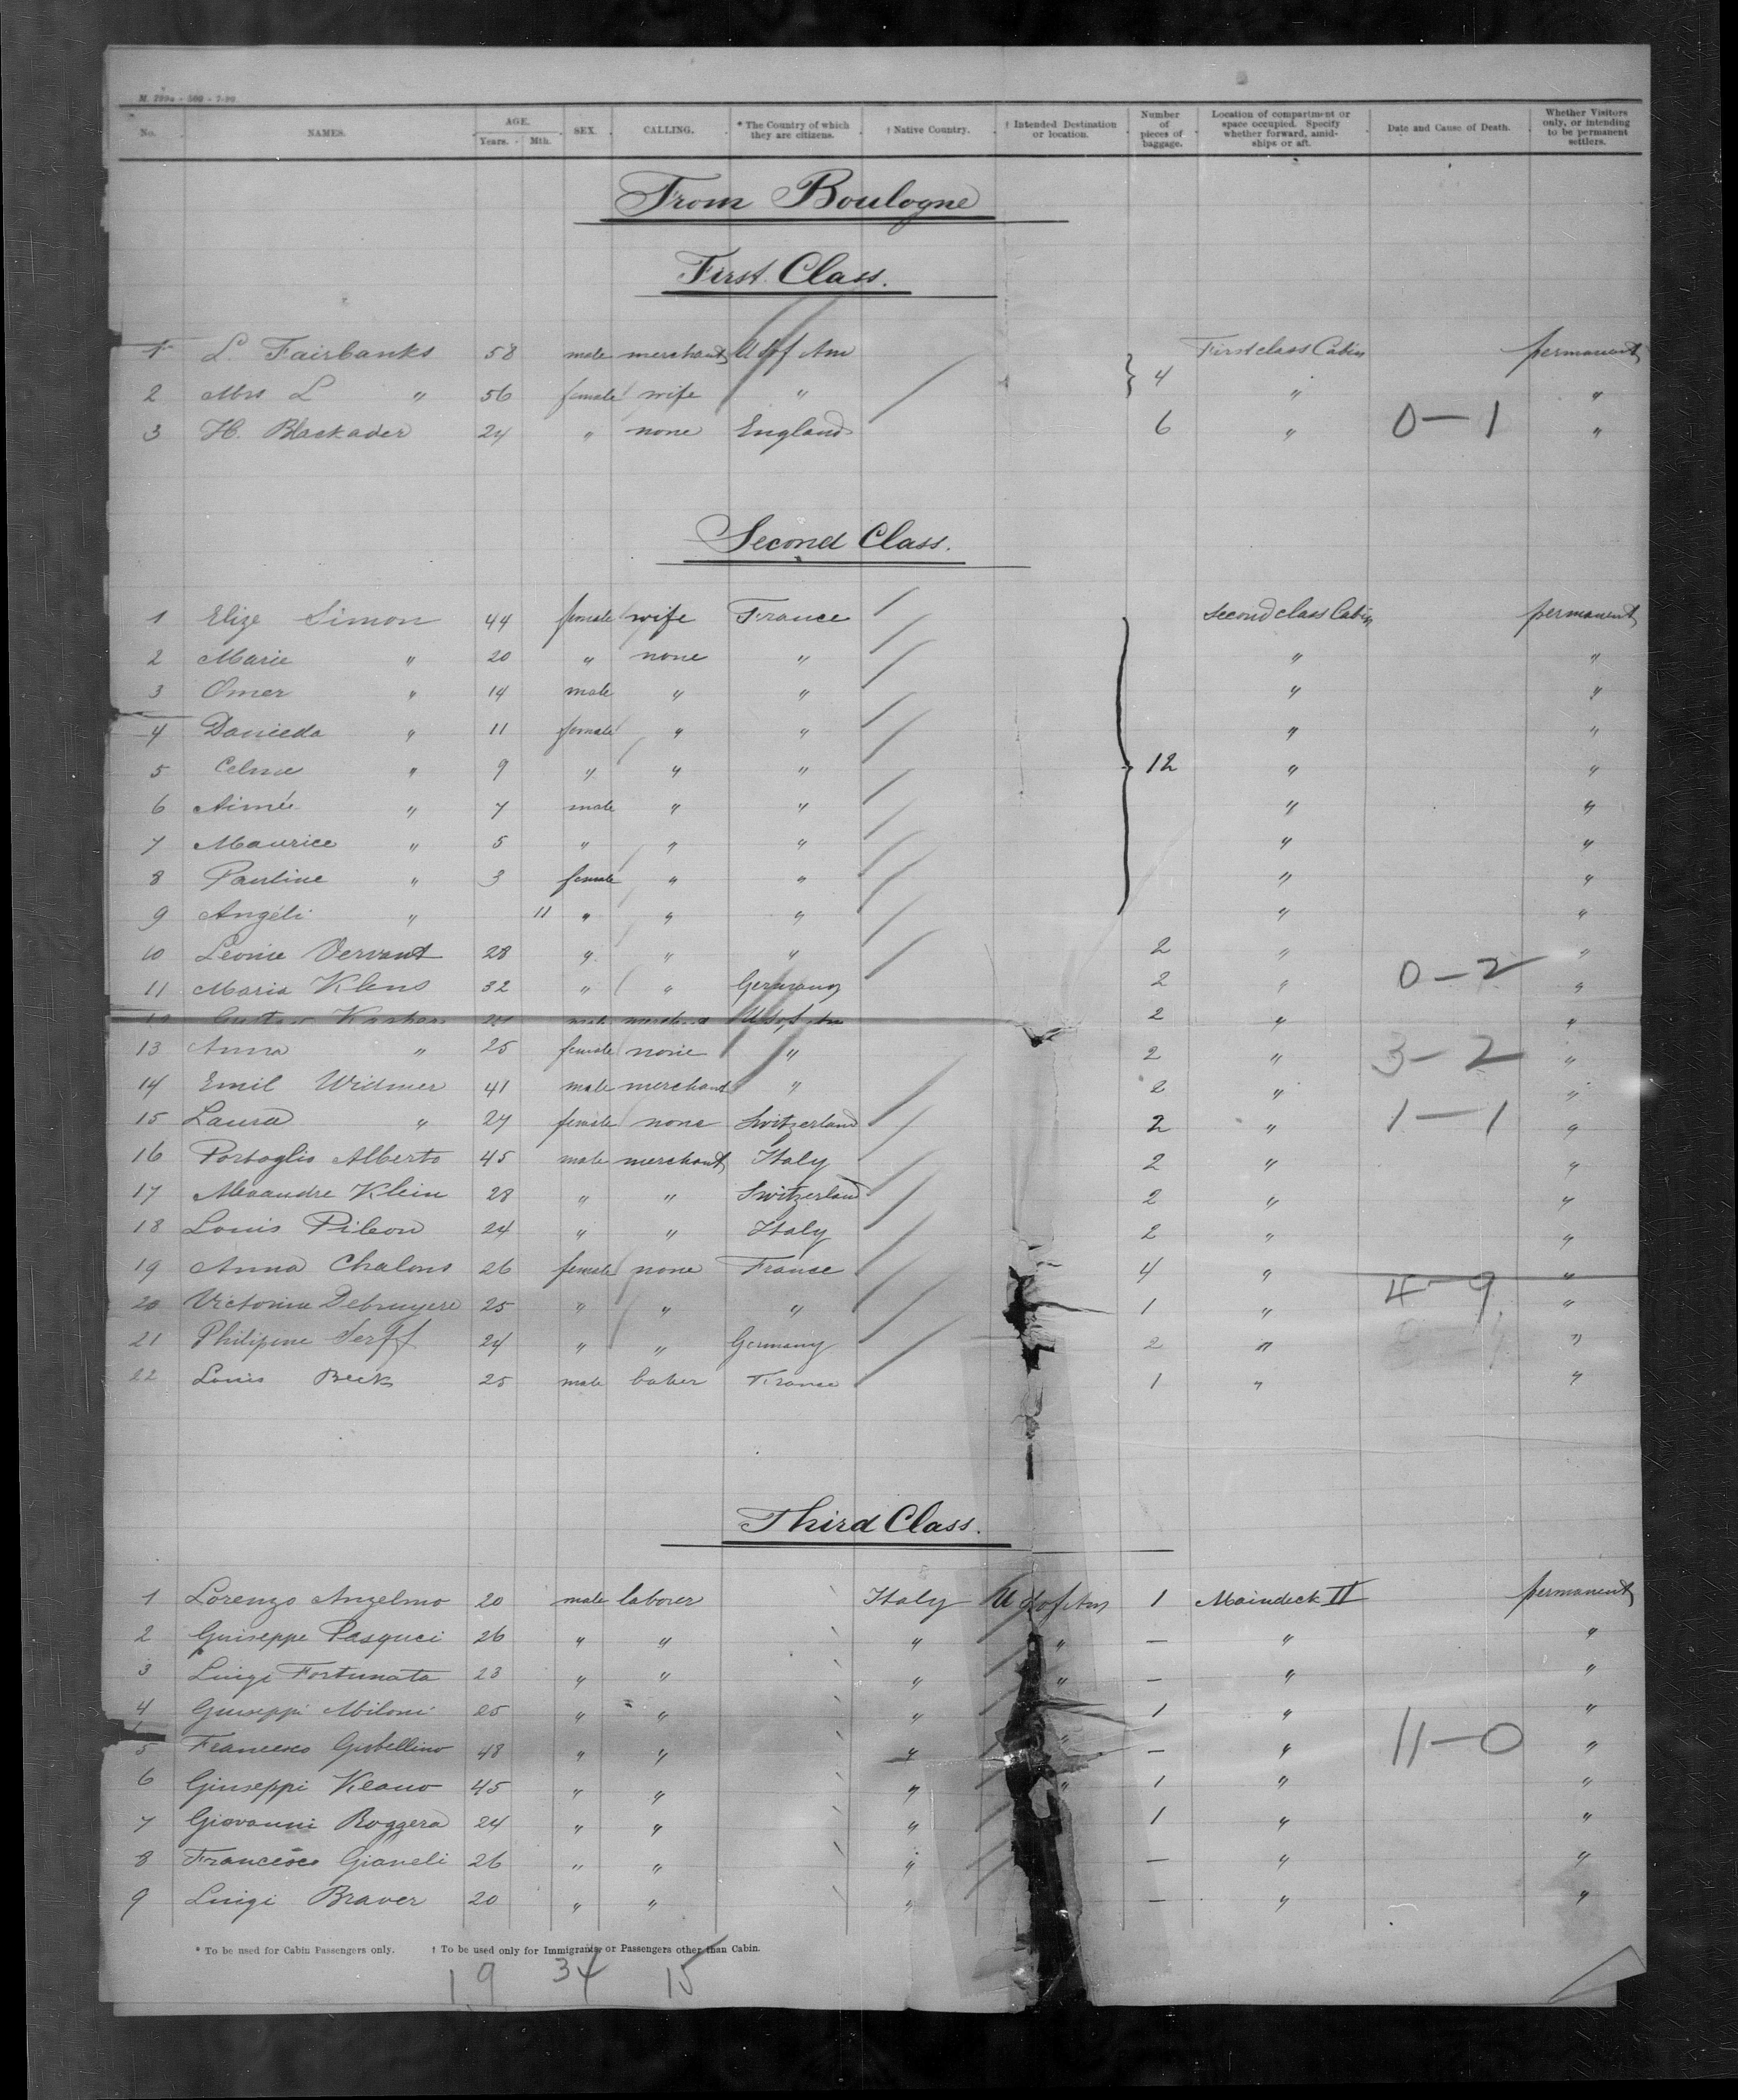 M. 229a - 500 - 7-90
No. NAMES. AGE. Years. Mth. SEX. CALLING. * The Country of which they are citizens. † Native Country. † Intended Destination or location. Number of pieces of baggage. Location of compartment or space occupied. Specify whether forward, amidships or aft. Date and Cause of Death. Whether Visitors only, or intending to be permanent settlers.
From Boulogne
First Class.
1 L. Fairbanks 58 male merchant U S of Am First class Cabin permanent
2 Mrs L " 56 female wife " 4 " "
3 H. Blackader 24 " none England 6 " 0-1 "
Second Class.
1 Elize Simon 44 female wife France second class Cabin permanent
2 Marie " 20 " none " " "
3 Omer " 14 male " " " "
4 Danieda " 11 female " " " "
5 Celine " 9 " " " 12 " "
6 Aimée " 7 male " " " "
7 Maurice " 5 " " " " "
8 Pauline " 3 female " " " "
9 Angéli " 11 " " " " "
10 Leonie Vervant 28 " " " 2 " "
11 Maria Klens 32 " " Germany 2 " 0-2 "
12 Gustav male merchant U S of Am 2 " "
13 Anna " 25 female none " 2 " 3-2 "
14 Emil Widmer 41 male merchant " 2 " "
15 Laura " 24 female none Switzerland 2 " 1-1 "
16 Portoglio Alberto 45 male merchant Italy 2 " "
17 Alexandre Klein 28 " " Switzerland 2 " "
18 Louis Pileon 24 " " Italy 2 " "
19 Anna Chalons 26 female none France 4 " "
20 Victorine Debruyere 25 " " " 1 " 4-9 "
21 Philipine Serff 24 " " Germany 2 " "
22 Louis Beck 25 male baker France 1 " "
Third Class.
1 Lorenzo Anzelmo 20 male laborer Italy U S of Am 1 Maindeck II permanent
2 Guiseppe Pasquci 26 " " " " — " "
3 Luigi Fortunata 23 " " " " — " "
4 Guiseppi Miloni 25 " " " 1 " "
5 Francesco Gubellino 48 " " " " — " 11-0 "
6 Giuseppi Keano 45 " " " " 1 " "
7 Giovanni Roggera 24 " " " 1 " "
8 Francesco Gianeli 26 " " " — " "
9 Luigi Braver 20 " " " — " "
* To be used for Cabin Passengers only. † To be used only for Immigrants, or Passengers other than Cabin.
19 34 15